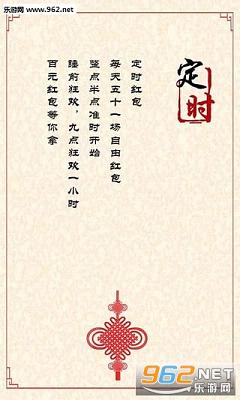 乐游网 www.962.net
定时
定时红包
每天五十一场自由红包
整点半点准时开始
睡前狂欢，九点狂欢一小时
百元红包等你拿
962.NET
乐游网